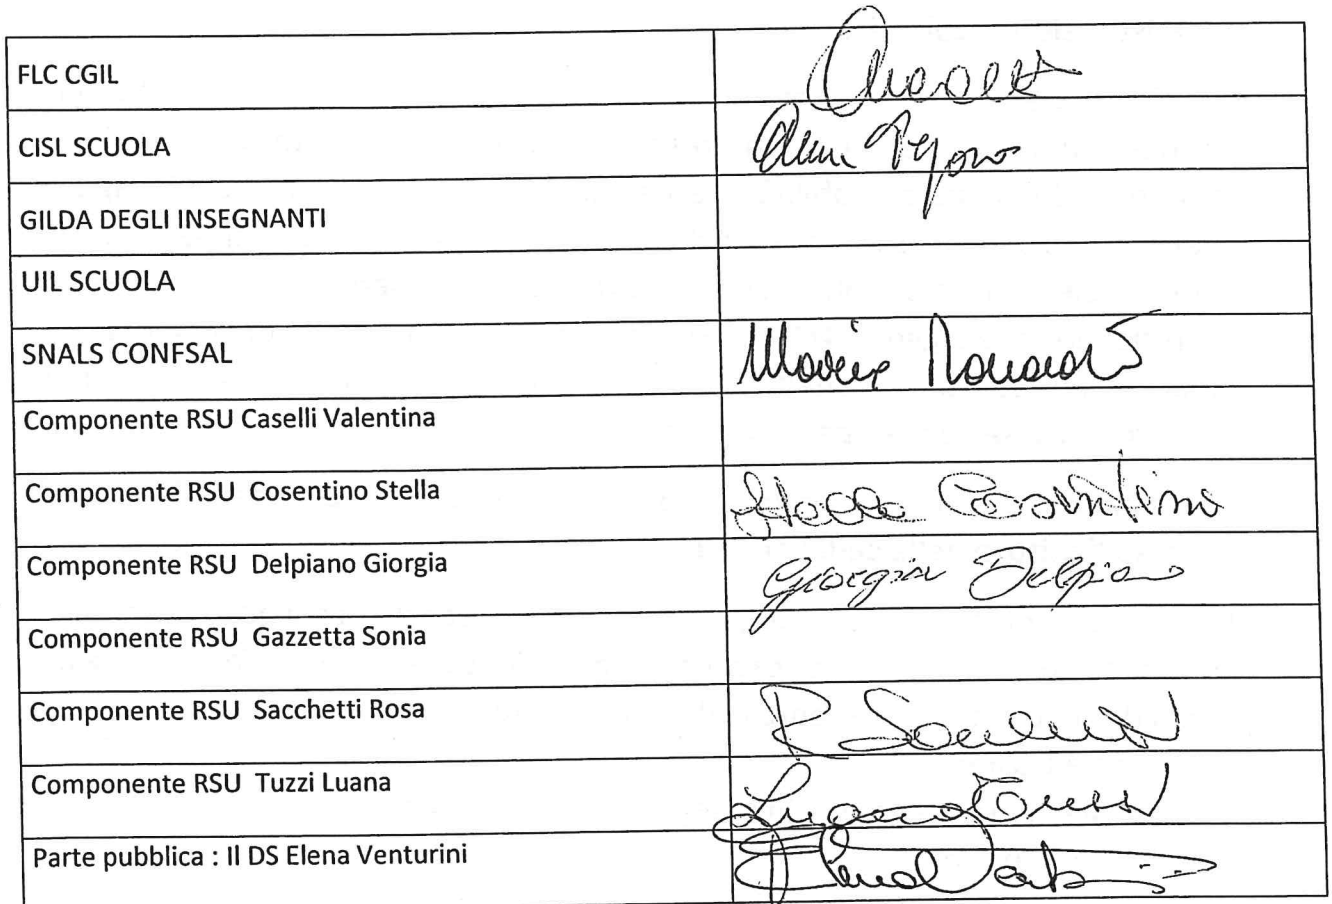 FLC CGIL
CISL SCUOLA
GILDA DEGLI INSEGNANTI
UIL SCUOLA
SNALS CONFSAL
Componente RSU Caselli Valentina
Componente RSU Cosentino Stella Stella Cosentino
Componente RSU Delpiano Giorgia Giorgia Delpiano
Componente RSU Gazzetta Sonia
Componente RSU Sacchetti Rosa
Componente RSU Tuzzi Luana
Parte pubblica : Il DS Elena Venturini